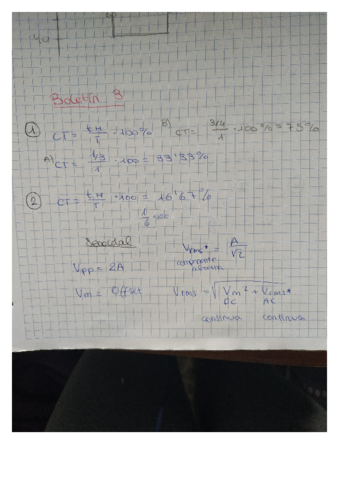 40
Boletín 3
① CT = t.H/T · 100% B) CT = 3/4/1 · 100% = 75%
A) CT = 1/3/1 · 100 = 33'33%
② CT = t.H/T · 100 = 16'67%
1/6
Senoidal
Vrms* = A/√2
componente alterna
Vpp = 2A
Vm = Offset Vrms = √Vm² + Vrms*
DC AC
continua continua